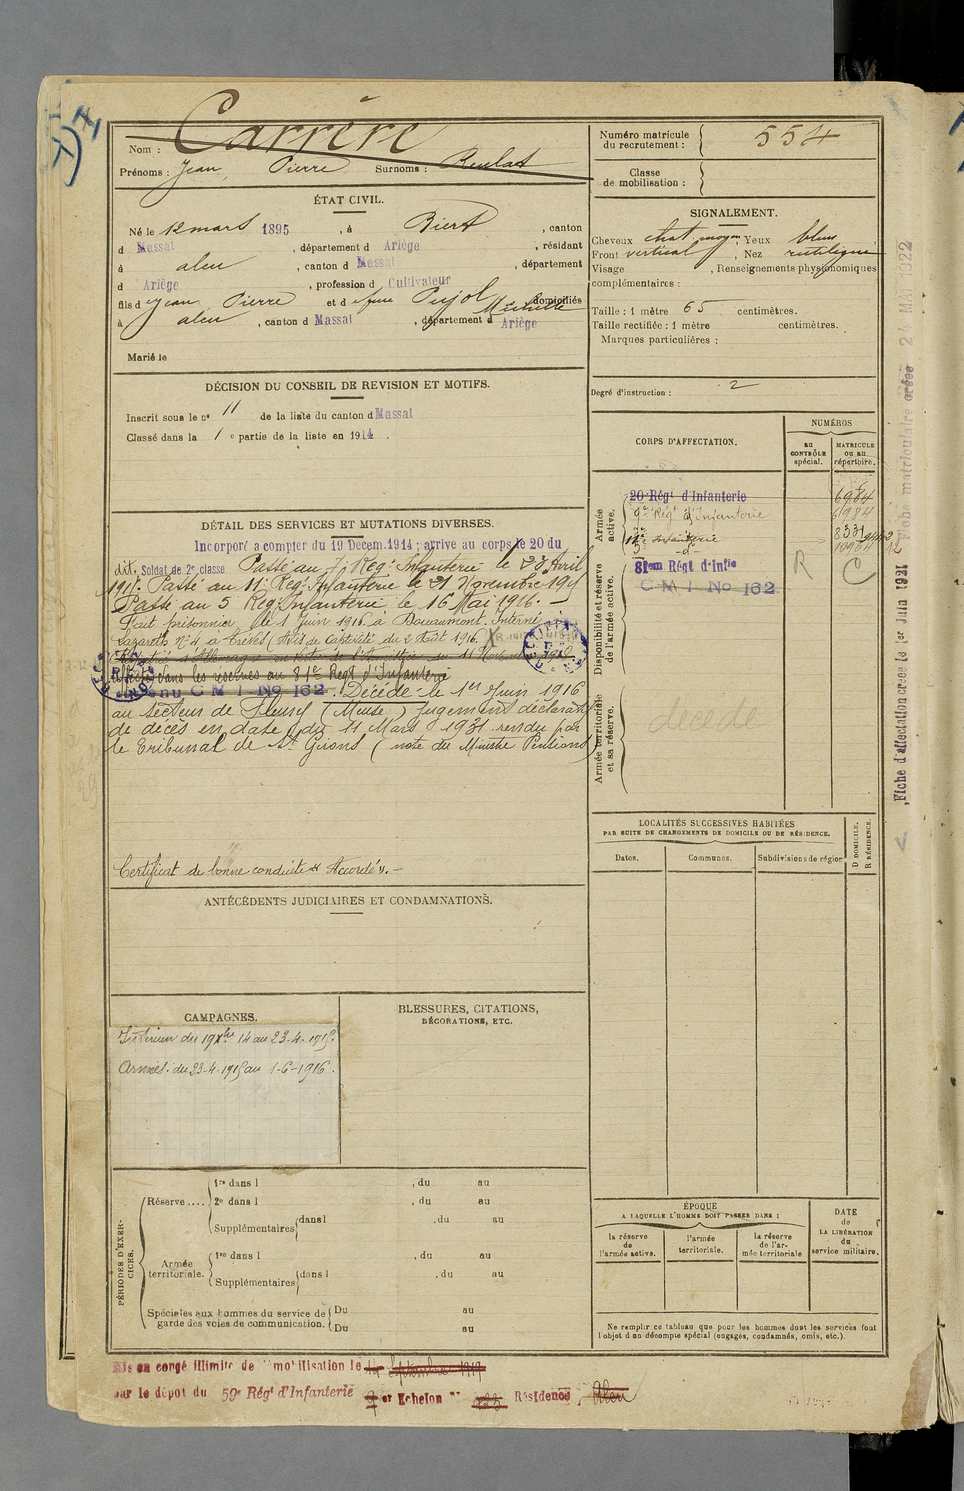 Carrère
Nom :
Prénoms : Jean Pierre Surnoms :
ÉTAT CIVIL.
Né le 12 mars 1895, à Biert, canton
d Massat, département d Ariège, résidant
à aleu, canton d Massat, département
d Ariège, profession d Cultivateur
fils d Jean Pierre et d feue Pujol Michelle domiciliés
à aleu, canton d Massat, département d Ariège
Marié le
DÉCISION DU CONSEIL DE REVISION ET MOTIFS.
Inscrit sous le nº 11 de la liste du canton d Massat
Classé dans la 1 e partie de la liste en 1914.
DÉTAIL DES SERVICES ET MUTATIONS DIVERSES.
Incorporé a compter du 19 Decem.1914 ; arrive au corps le 20 du
dit. Soldat de 2e classe Passé au Rég. Infanterie le 23 Avril
1915. Passé au 11e Rég. Infanterie le 21 Novembre 1915
Passé au 5 Rég. Infanterie le 16 Mai 1916. —
Fait prisonnier le 1 juin 1916 à Douaumont. Interné
Lazareth Nº 4 à Trèves (Avis de Captivité du 2 Août 1916
Affecté dans les réserves au 81e Regt d'Infanterie
C M I - No 162. Décédé le 1er Juin 1916
au secteur de Fleury (Meuse) Jugement déclaratif
de décès en date du 11 Mars 1931 rendu par
le Tribunal de St Girons (note du Ministre Pensions)
Certificat de bonne conduite « Accordé ». —
ANTÉCÉDENTS JUDICIAIRES ET CONDAMNATIONS.
CAMPAGNES.
Intérieur du 19 Xbre 14 au 23-4-1915.
Armées. du 23-4-1915 au 1-6-1916.
BLESSURES, CITATIONS,
DÉCORATIONS, ETC.
PÉRIODES D'EXERCICES.
Réserve....
1re dans l , du au
2e dans l , du au
Supplémentaires dans l , du au
Armée
territoriale.
1re dans l , du au
Supplémentaires dans l , du au
Spéciales aux hommes du service de
garde des voies de communication.
Du au
Du au
Mis en congé illimité de mobilisation le Septembre 1919
par le dépot du 59e Régt d'Infanterie er Echelon Résidence Aleu
Numéro matricule
du recrutement : 554
Classe
de mobilisation :
SIGNALEMENT.
Cheveux chat moyen, Yeux bleus
Front vertical, Nez rectiligne
Visage , Renseignements physionomiques
complémentaires :
Taille : 1 mètre 65 centimètres.
Taille rectifiée : 1 mètre centimètres.
Marques particulières :
Degré d'instruction : 2
CORPS D'AFFECTATION.
NUMÉROS
AU
CONTRÔLE
spécial.
MATRICULE
OU AU
répertoire.
Armée
active.
20e Régt d'Infanterie 6984
9e Régt d'Infanterie 6984
Infanterie
Disponibilité et réserve
de l'armée active.
81em Régt d'Infie R C
C M I No 162
Armée territoriale
et sa réserve.
décédé
LOCALITÉS SUCCESSIVES HABITÉES
PAR SUITE DE CHANGEMENTS DE DOMICILE OU DE RÉSIDENCE.
Dates.
Communes.
Subdivisions de région
D DOMICILE.
R RÉSIDENCE.
ÉPOQUE
A LAQUELLE L'HOMME DOIT PASSER DANS :
la réserve
de
l'armée active.
l'armée
territoriale.
la réserve
de l'ar-
mée territoriale
DATE
de
LA LIBÉRATION
du
service militaire.
Ne remplir ce tableau que pour les hommes dont les services font
l'objet d'un décompte spécial (engagés, condamnés, omis, etc.).
Fiche d'affectation créée le 1er Juin 1921 Fiche matriculaire créée 24 MAI 1922